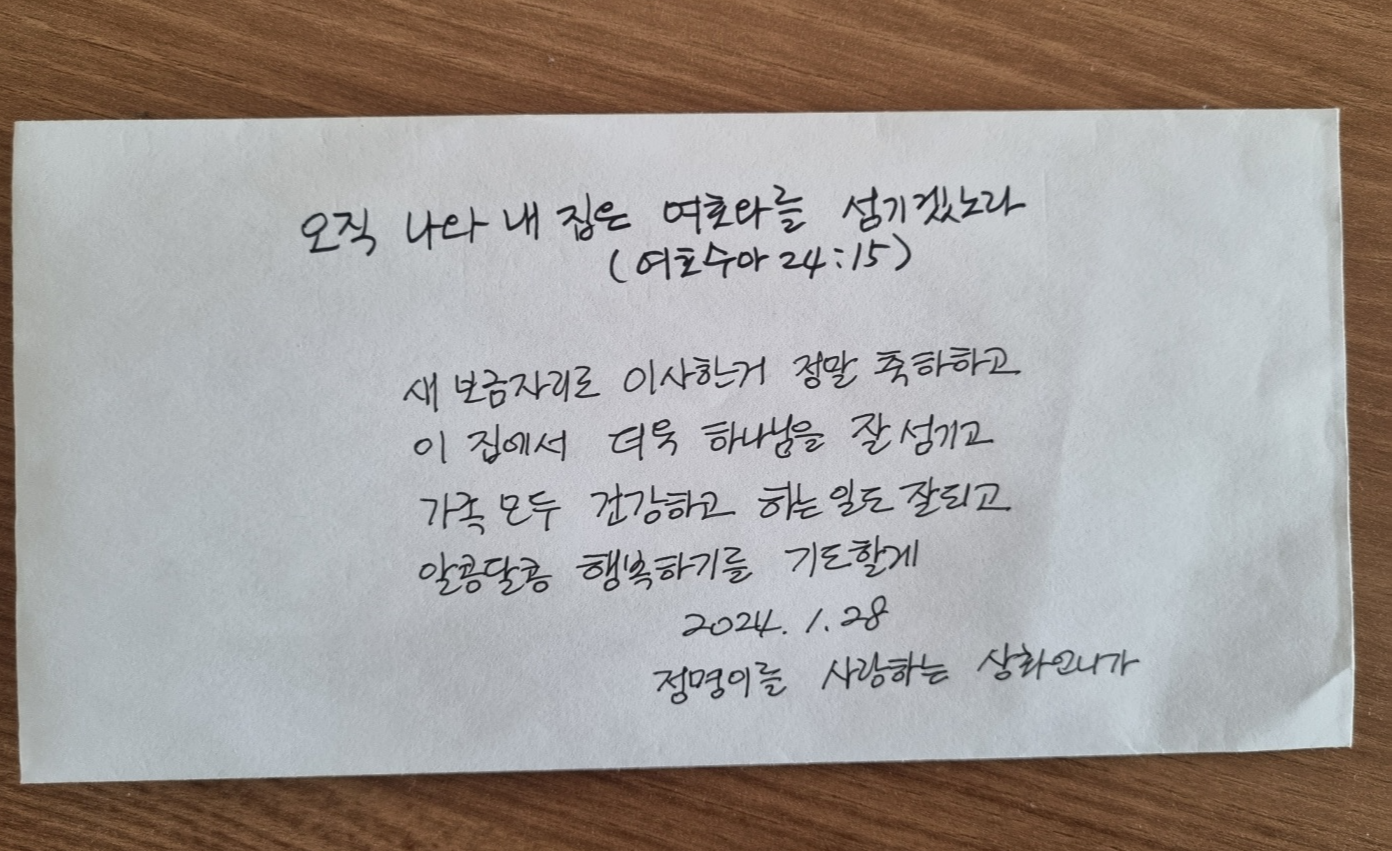 오직 나와 내 집은 여호와를 섬기겠노라
(여호수아 24:15)
새 보금자리로 이사한거 정말 축하하고
이 집에서 더욱 하나님을 잘 섬기고
가족 모두 건강하고 하는일도 잘되고
알콩달콩 행복하기를 기도할게
2024. 1. 28
정명이를 사랑하는 상화언니가